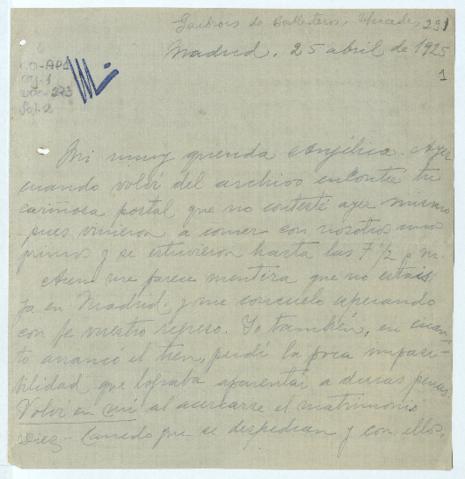 Gaibrois de Ballesteros, Mercedes 231
Madrid, 25 abril de 1925
1
Mi muy querida Angélica. Ayer
cuando volví del archivo encontré tu
cariñosa postal, que no contesté ayer mismo
pues vinieron a comer con nosotros unos
primos y se estuvieron hasta las 7½ p.m.
Aun me parece mentira que no estais
ya en Madrid, y me consuelo esperando
con fe vuestro regreso. Yo también, en cuan-
to arrancó el tren, perdí la poca impasi-
bilidad que lograba aparentar a duras penas.
Volví en mí al acercarse el matrimonio
Diez-Canedo que se despedian y con ellos